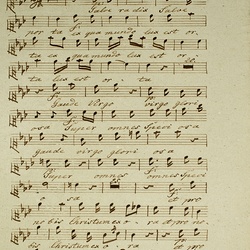 Salve radix Salve
porta ex qua mundo lux est or
ta ex qua mundo lux est or
ta lux est orta
Gaude Virgo Virgo glori
osa Super omnes Speciosa
gaude virgo glori osa
Super omnes omnes Speci
osa et pro
nobis Christum exora et pro no
bis Christum exora et pro